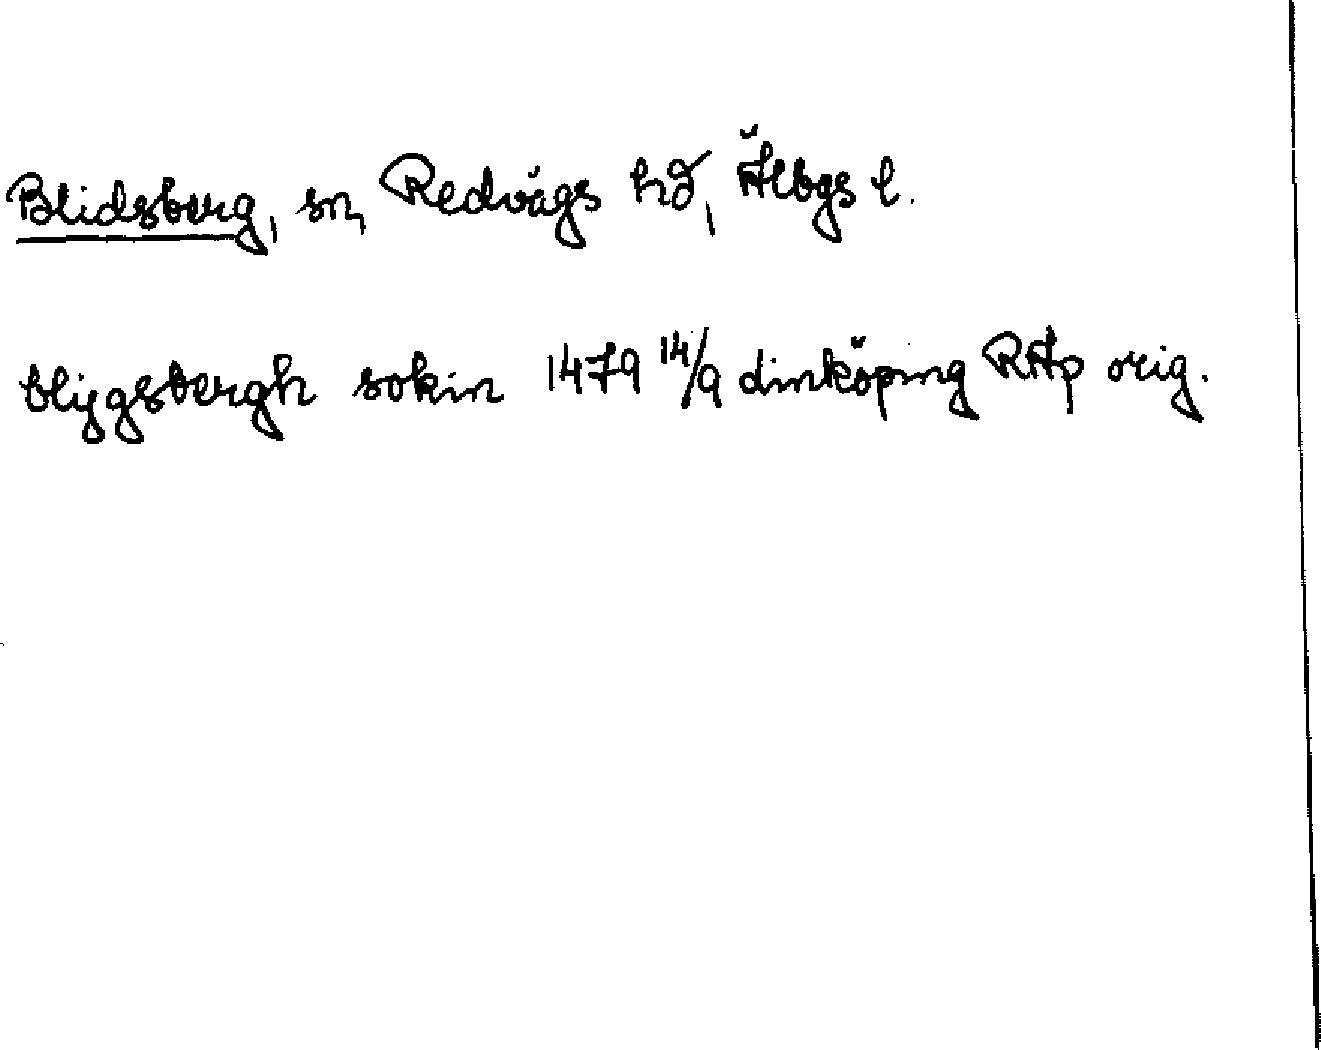 Blidsberg, sn, Redvägs hd, Älvbgs l.
blijgsbergh sokin 1479 14/9 Linköping RAp orig.